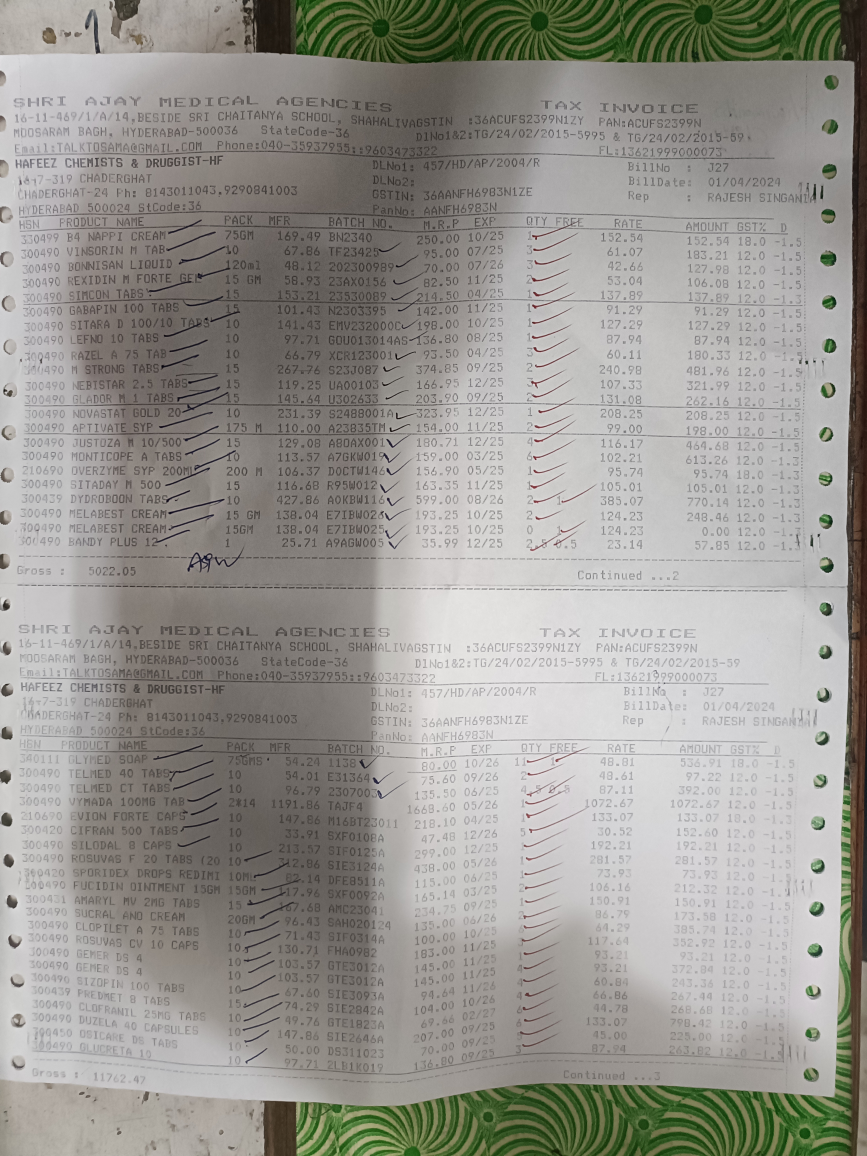 1
SHRI AJAY MEDICAL AGENCIES TAX INVOICE
16-11-469/1/A/14,BESIDE SRI CHAITANYA SCHOOL, SHAHALIVAGSTIN :36ACUFS2399N1ZY PAN:ACUFS2399N
MOOSARAM BAGH, HYDERABAD-500036 StateCode-36 DlNo1&2:TG/24/02/2015-5995 & TG/24/02/2015-59
Email:TALKTOSAMA@GMAIL.COM Phone:040-35937955::9603473322 FL:13621999000073
HAFEEZ CHEMISTS & DRUGGIST-HF DLNo1: 457/HD/AP/2004/R BillNo : J27
16-7-319 CHADERGHAT DLNo2: BillDate: 01/04/2024
CHADERGHAT-24 Ph: 8143011043,9290841003 GSTIN: 36AANFH6983N1ZE Rep : RAJESH SINGANI
HYDERABAD 500024 StCode:36 PanNo: AANFH6983N
HSN PRODUCT NAME PACK MFR BATCH NO. M.R.P EXP QTY FREE RATE AMOUNT GST% D
330499 B4 NAPPI CREAM 75GM 169.49 BN2340 250.00 10/25 1 152.54 152.54 18.0 -1.5
300490 VINSORIN M TAB 10 67.86 TF23425 95.00 07/25 3 61.07 183.21 12.0 -1.5
300490 BONNISAN LIQUID 120ml 48.12 202300989 70.00 07/26 3 42.66 127.98 12.0 -1.5
300490 REXIDIN M FORTE GEL 15 GM 58.93 23AX0156 82.50 11/25 2 53.04 106.08 12.0 -1.5
300490 SIMCON TABS 15 153.21 23530089 214.50 04/25 1 137.89 137.89 12.0 -1.3
300490 GABAPIN 100 TABS 15 101.43 N2303395 142.00 11/25 1 91.29 91.29 12.0 -1.5
300490 SITARA D 100/10 TABS 10 141.43 EMV232000C 198.00 10/25 1 127.29 127.29 12.0 -1.5
300490 LEFNO 10 TABS 10 97.71 GOU013014AS 136.80 08/25 1 87.94 87.94 12.0 -1.5
300490 RAZEL A 75 TAB 10 66.79 XCR123001 93.50 04/25 3 60.11 180.33 12.0 -1.5
300490 M STRONG TABS 15 267.76 S23J087 374.85 09/25 2 240.98 481.96 12.0 -1.5
300490 NEBISTAR 2.5 TABS 15 119.25 UA00103 166.95 12/25 3 107.33 321.99 12.0 -1.5
300490 GLADOR M 1 TABS 15 145.64 U302633 203.90 09/25 2 131.08 262.16 12.0 -1.5
300490 NOVASTAT GOLD 20 10 231.39 S248B001A 323.95 12/25 1 208.25 208.25 12.0 -1.5
300490 APTIVATE SYP 175 M 110.00 A23835TM 154.00 11/25 2 99.00 198.00 12.0 -1.5
300490 JUSTOZA M 10/500 15 129.08 A80AX001 180.71 12/25 4 116.17 464.68 12.0 -1.5
300490 MONTICOPE A TABS 10 113.57 A7GKW019 159.00 03/25 6 102.21 613.26 12.0 -1.3
210690 OVERZYME SYP 200ML 200 M 106.37 DOCTW146 156.90 05/25 1 95.74 95.74 18.0 -1.3
300490 SITADAY M 500 15 116.68 R95W012 163.35 11/25 1 105.01 105.01 12.0 -1.5
300439 DYDROBOON TABS 10 427.86 A0KDW116 599.00 08/26 2 1 385.07 770.14 12.0 -1.3
300490 MELABEST CREAM 15 GM 138.04 E7IBW024 193.25 10/25 2 124.23 248.46 12.0 -1.3
300490 MELABEST CREAM 15GM 138.04 E7IBW025 193.25 10/25 0 1 124.23 0.00 12.0 -1.3
300490 BANDY PLUS 12 1 25.71 A9AGW005 35.99 12/25 2.5 0.5 23.14 57.85 12.0 -1.3
Gross : 5022.05 Continued ...2
SHRI AJAY MEDICAL AGENCIES TAX INVOICE
16-11-469/1/A/14,BESIDE SRI CHAITANYA SCHOOL, SHAHALIVAGSTIN :36ACUFS2399N1ZY PAN:ACUFS2399N
MOOSARAM BAGH, HYDERABAD-500036 StateCode-36 DlNo1&2:TG/24/02/2015-5995 & TG/24/02/2015-59
Email:TALKTOSAMA@GMAIL.COM Phone:040-35937955::9603473322 FL:13621999000073
HAFEEZ CHEMISTS & DRUGGIST-HF DLNo1: 457/HD/AP/2004/R BillNo : J27
16-7-319 CHADERGHAT DLNo2: BillDate: 01/04/2024
CHADERGHAT-24 Ph: 8143011043,9290841003 GSTIN: 36AANFH6983N1ZE Rep : RAJESH SINGANI
HYDERABAD 500024 StCode:36 PanNo: AANFH6983N
HSN PRODUCT NAME PACK MFR BATCH NO. M.R.P EXP QTY FREE RATE AMOUNT GST% D
340111 GLYMED SOAP 75GMS 54.24 1138 80.00 10/26 11 1 48.81 536.91 18.0 -1.5
300490 TELMED 40 TABS 10 54.01 E31364 75.60 09/26 2 48.61 97.22 12.0 -1.5
300490 TELMED CT TABS 10 96.79 2307003 135.50 06/25 4.5 0.5 87.11 392.00 12.0 -1.5
300490 VYMADA 100MG TAB 2*14 1191.86 TAJF4 1668.60 05/26 1 1072.67 1072.67 12.0 -1.5
210690 EVION FORTE CAPS 10 147.86 M16BT23011 218.10 04/25 1 133.07 133.07 18.0 -1.5
300420 CIFRAN 500 TABS 10 33.91 SXF0108A 47.48 12/26 5 30.52 152.60 12.0 -1.5
300490 SILODAL 8 CAPS 10 213.57 SIF0125A 299.00 12/25 1 192.21 192.21 12.0 -1.5
300490 ROSUVAS F 20 TABS (20 10 312.86 SIE3124A 438.00 05/26 1 281.57 281.57 12.0 -1.5
300420 SPORIDEX DROPS REDIMI 10ML 82.14 DFE8511A 115.00 06/25 1 73.93 73.93 12.0 -1.5
300490 FUCIDIN OINTMENT 15GM 15GM 117.96 SXF0092A 165.14 03/25 2 106.16 212.32 12.0 -1.5
300431 AMARYL MV 2MG TABS 15 167.68 AMC23041 234.75 09/25 1 150.91 150.91 12.0 -1.5
300490 SUCRAL ANO CREAM 20GM 96.43 SAH020124 135.00 06/26 2 86.79 173.58 12.0 -1.5
300490 CLOPILET A 75 TABS 10 71.43 SIF0314A 100.00 10/25 6 64.29 385.74 12.0 -1.5
300490 ROSUVAS CV 10 CAPS 10 130.71 FHA0982 183.00 11/25 3 117.64 352.92 12.0 -1.5
300490 GEMER DS 4 10 103.57 GTE3012A 145.00 11/25 1 93.21 93.21 12.0 -1.5
300490 GEMER DS 4 10 103.57 GTE3012A 145.00 11/25 4 93.21 372.84 12.0 -1.5
300490 SIZOPIN 100 TABS 10 67.60 SIE3093A 94.64 11/26 4 60.84 243.36 12.0 -1.5
300439 PREDMET 8 TABS 10 74.29 SIE2842A 104.00 10/26 4 66.86 267.44 12.0 -1.5
300490 CLOFRANIL 25MG TABS 15 49.76 GTE1823A 69.66 02/27 6 44.78 268.68 12.0 -1.5
300490 DUZELA 40 CAPSULES 10 147.86 SIE2646A 207.00 09/25 6 133.07 798.42 12.0 -1.5
300450 OSICARE DS TABS 10 50.00 DS311023 70.00 09/25 5 45.00 225.00 12.0 -1.5
300490 GLUCRETA 10 10 97.71 2LB1K019 136.80 09/25 3 87.94 263.82 12.0 -1.5
Gross : 11762.47 Continued ...3